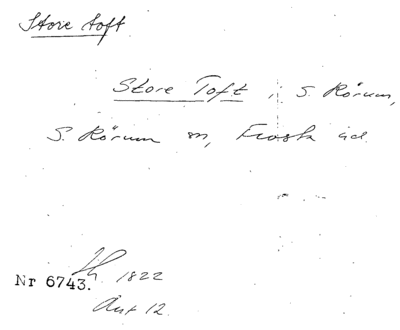 Store toft
Store Toft, S. Rörum,
S. Rörum sn, Frosta hd.
Lh. 1822
Nr 6743.
Ant 12.